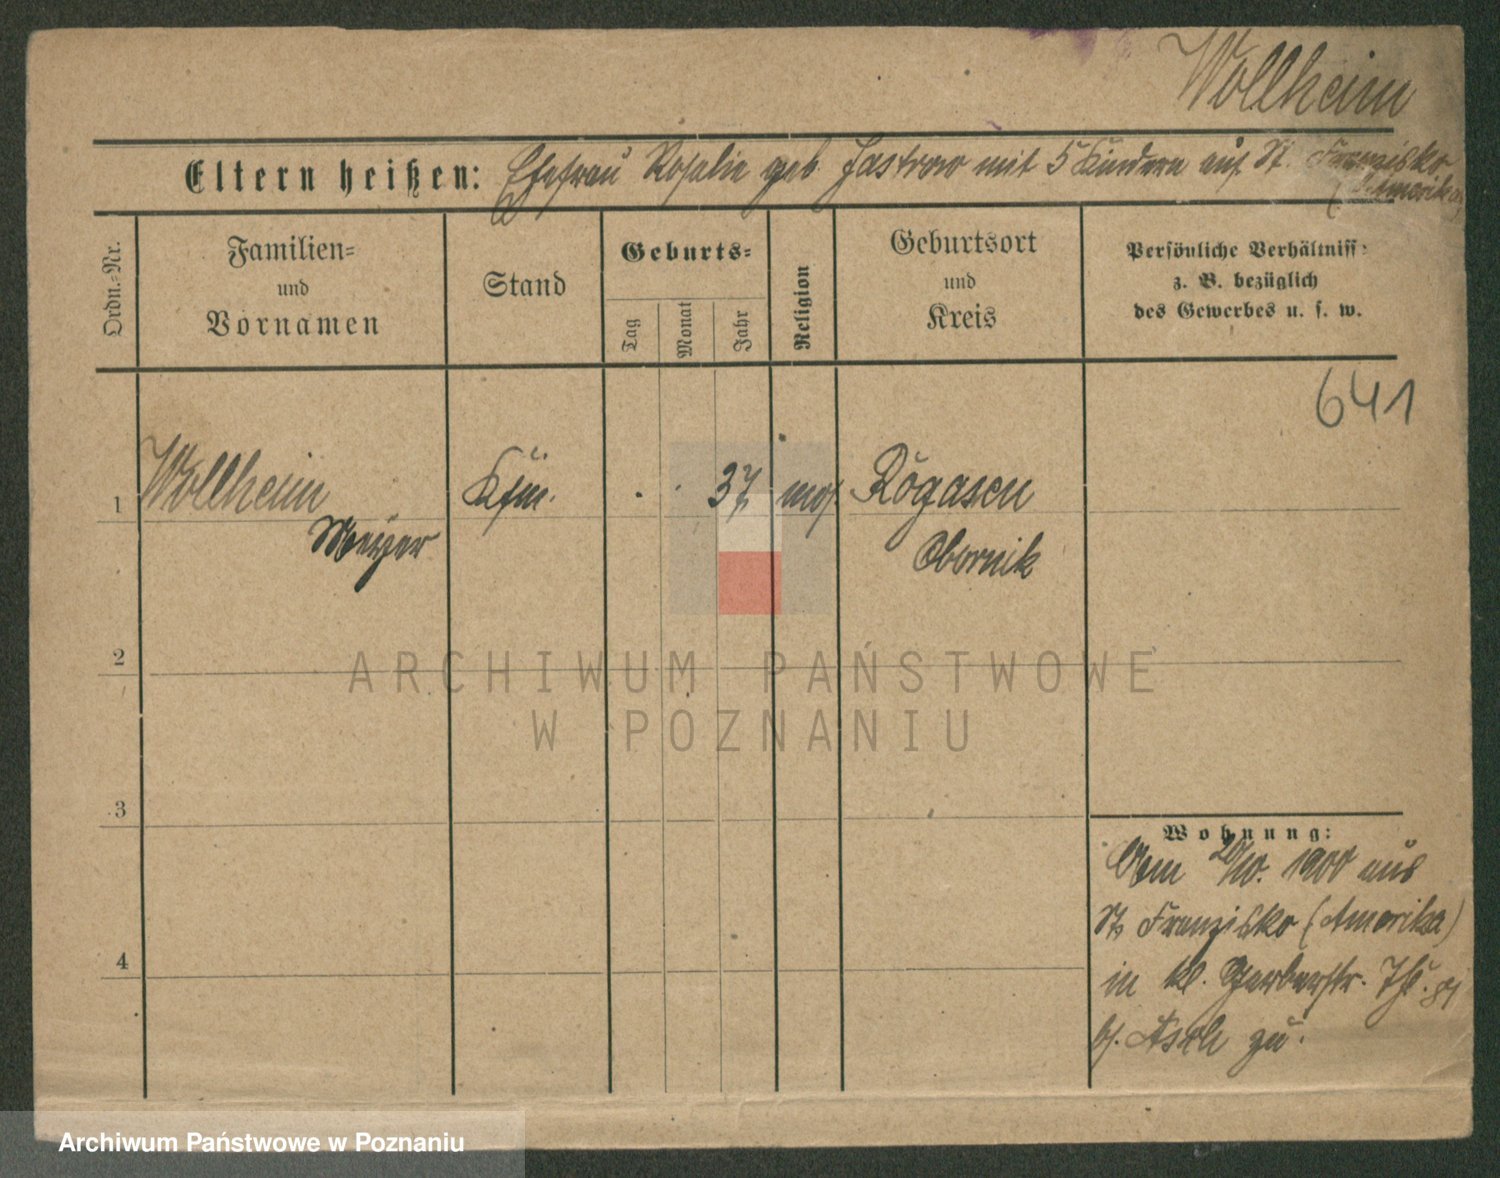 Wollheim
Eltern heißen: Ehefrau Rosalie geb. Jastrow mit 5 Kindern auf St. Franzisko
(Amerika)
Ordn.-Nr.
Familien-
und
Vornamen
Stand
Geburts-
Tag
Monat
Jahr
Religion
Geburtsort
und
Kreis
Persönliche Verhältniss-
z. B. bezüglich
des Gewerbes u. s. w.
641
1 Wollheim Kfm. . . 37 mos. Rogasen
Meyer Obornik
2
ARCHIWUM PAŃSTWOWE
W POZNANIU
3
Wohnung:
20/10. 1900 aus
St. Franzisko (Amerika)
in kl. Gerberstr.
b. Asch zu.
4
Archiwum Państwowe w Poznaniu